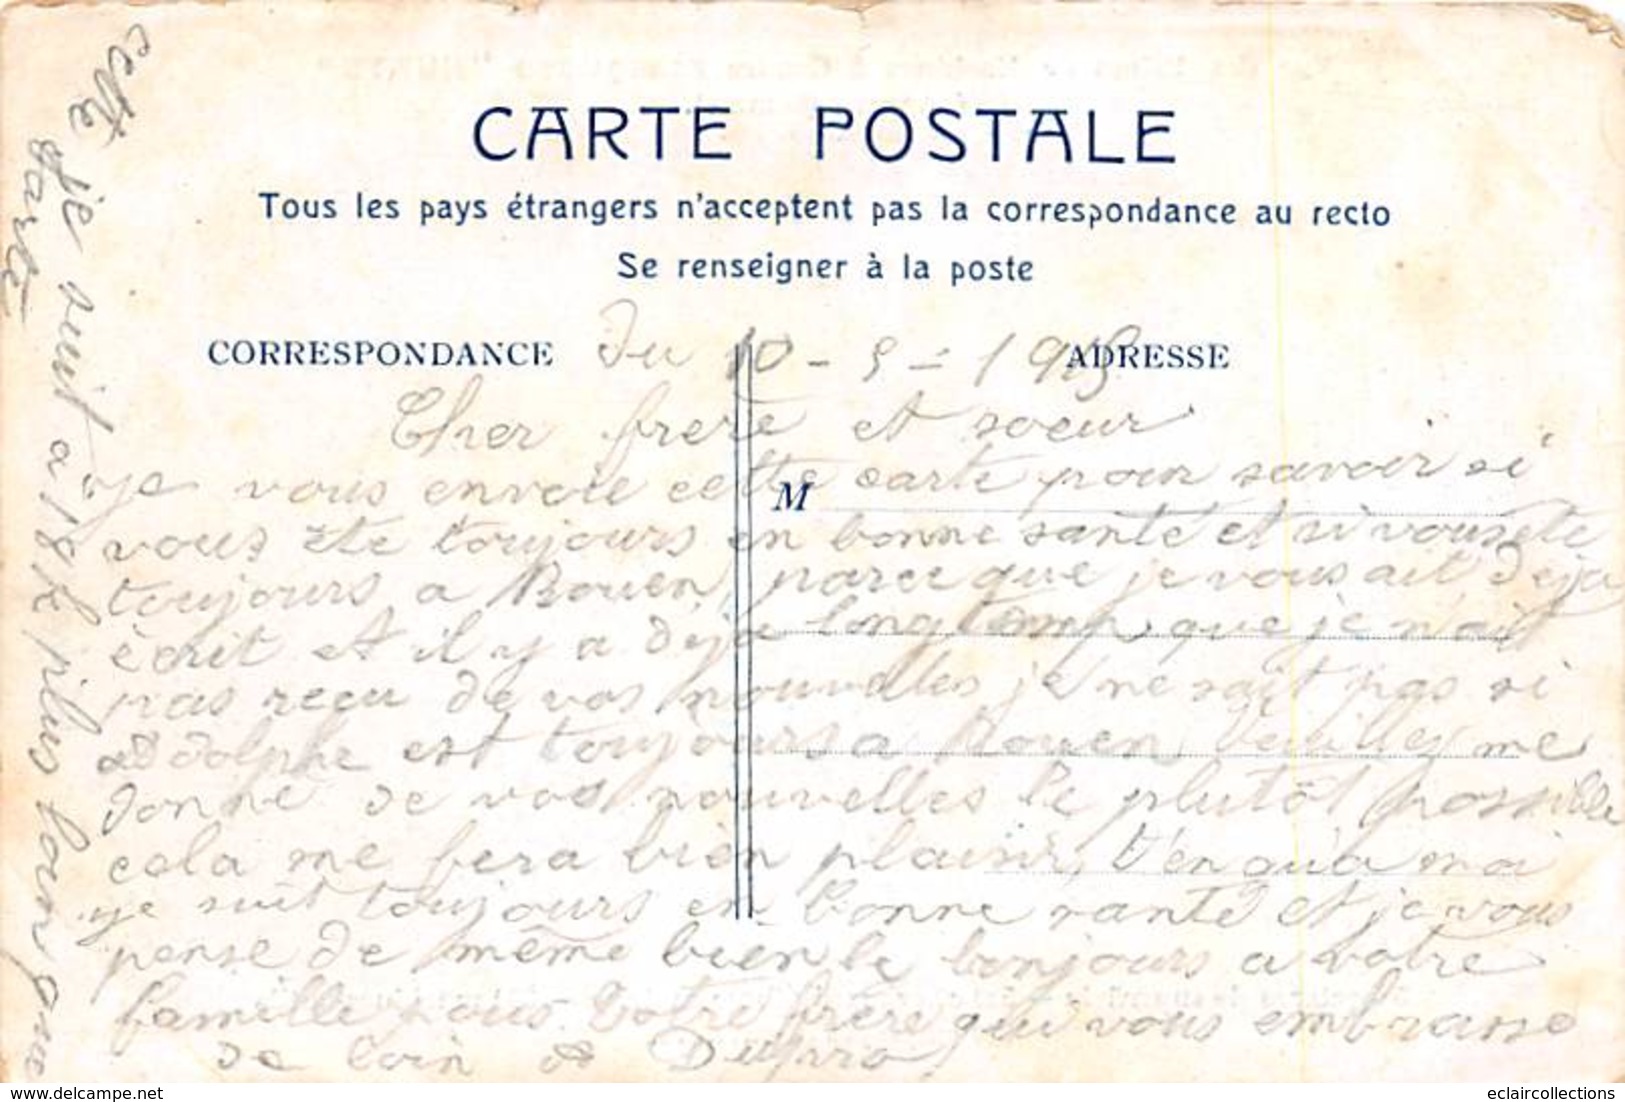 CARTE POSTALE
Tous les pays étrangers n'acceptent pas la correspondance au recto
Se renseigner à la poste
CORRESPONDANCE
ADRESSE
M
Du 10 - 5 - 1913
Cher frere et soeur
je vous envoie cette carte pour savoir si
vous ete toujours en bonne santé et si vous ete
toujours a Rouen, parce que je vous ait deja
écrit et il y a deja longtemp que je n'ait
pas reçu de vos nouvelles je ne sait pas si
adolphe est toujours a Rouen, Veuillez me
donne de vos nouvelles le plutôt possible
cela me fera bien plaisir, t'en qu'a moi
je suit toujours en bonne santé et je vous
pense de même bien le bonjours a votre
famille pour Votre frère qui vous embrasse
de loin
cette je suit a 18 K plus loin que
carte
eclaircollections